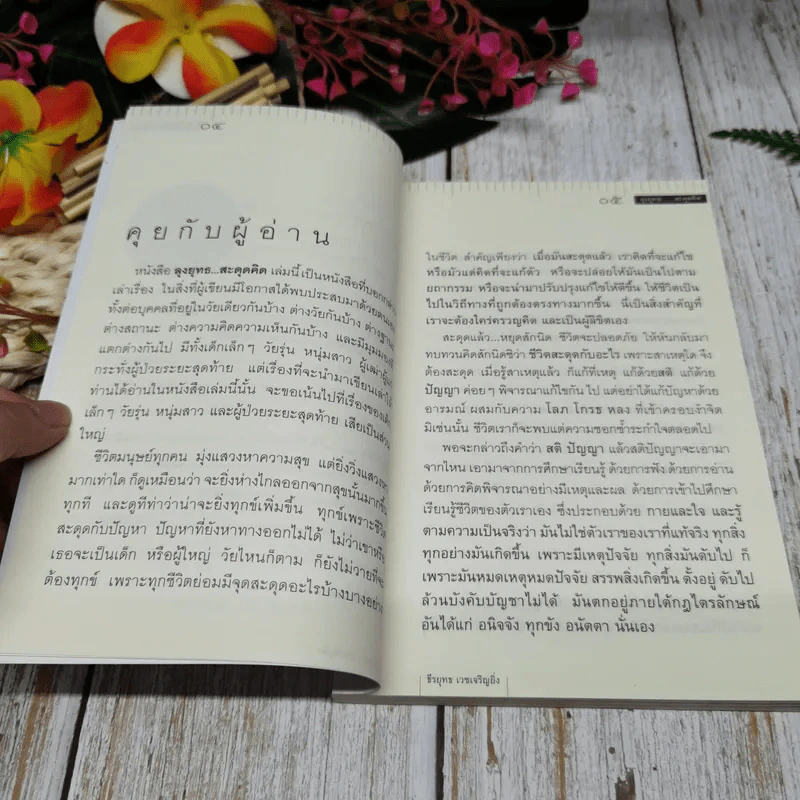 ๐๔
คุยกับผู้อ่าน
หนังสือ ลุงยุทธ...สะดุดคิด เล่มนี้เป็นหนังสือที่บอกกล่าว
เล่าเรื่อง ในสิ่งที่ผู้เขียนมีโอกาสได้พบประสบมาด้วยตนเอง
ทั้งต่อบุคคลที่อยู่ในวัยเดียวกันบ้าง ต่างวัยกันบ้าง ต่างฐานะ
ต่างสถานะ ต่างความคิดความเห็นกันบ้าง และมีมุมมองที่
แตกต่างกันไป มีทั้งเด็กเล็กๆ วัยรุ่น หนุ่มสาว ผู้เฒ่าผู้แก่
กระทั่งผู้ป่วยระยะสุดท้าย แต่เรื่องที่จะนำมาเขียนเล่าให้
ท่านได้อ่านในหนังสือเล่มนี้นั้น จะขอเน้นไปที่เรื่องของเด็ก
เล็กๆ วัยรุ่น หนุ่มสาว และผู้ป่วยระยะสุดท้าย เสียเป็นส่วน
ใหญ่
ชีวิตมนุษย์ทุกคน มุ่งแสวงหาความสุข แต่ยิ่งวิ่งแสวงหา
มากเท่าใด ก็ดูเหมือนว่า จะยิ่งห่างไกลออกจากสุขนั้นมากขึ้น
ทุกที และดูทีท่าว่าน่าจะยิ่งทุกข์เพิ่มขึ้น ทุกข์เพราะชีวิต
สะดุดกับปัญหา ปัญหาที่ยังหาทางออกไม่ได้ ไม่ว่าเขาหรือ
เธอจะเป็นเด็ก หรือผู้ใหญ่ วัยไหนก็ตาม ก็ยังไม่วายที่จะ
ต้องทุกข์ เพราะทุกชีวิตย่อมมีจุดสะดุดอะไรบ้างบางอย่าง
๐๕ ลุงยุทธ ...สะดุดคิด
ในชีวิต สำคัญเพียงว่า เมื่อมันสะดุดแล้ว เราคิดที่จะแก้ไข
หรือมัวแต่คิดที่จะแก้ตัว หรือจะปล่อยให้มันเป็นไปตาม
ยถากรรม หรือจะนำมาปรับปรุงแก้ไขให้ดีขึ้น ให้ชีวิตเป็น
ไปในวิถีทางที่ถูกต้องตรงทางมากขึ้น นี่เป็นสิ่งสำคัญที่
เราจะต้องใคร่ครวญคิด และเป็นผู้ลิขิตเอง
สะดุดแล้ว...หยุดสักนิด ชีวิตจะปลอดภัย ให้หันกลับมา
ทบทวนคิดสักนิดซิว่า ชีวิตสะดุดกับอะไร เพราะสาเหตุใด จึง
ต้องสะดุด เมื่อรู้สาเหตุแล้ว ก็แก้ที่เหตุ แก้ด้วยสติ แก้ด้วย
ปัญญา ค่อยๆ พิจารณาแก้ไขกัน ไป แต่อย่าได้แก้ปัญหาด้วย
อารมณ์ ผสมกับความ โลภ โกรธ หลง ที่เข้าครอบงำจิต
มิเช่นนั้น ชีวิตเราก็จะพบแต่ความชอกช้ำระกำใจตลอดไป
พอจะกล่าวถึงคำว่า สติ ปัญญา แล้วสติปัญญาจะเอามา
จากไหน เอามาจากการศึกษาเรียนรู้ ด้วยการฟัง ด้วยการอ่าน
ด้วยการคิดพิจารณาอย่างมีเหตุและผล ด้วยการเข้าไปศึกษา
เรียนรู้ชีวิตของตัวเราเอง ซึ่งประกอบด้วย กายและใจ และรู้
ตามความเป็นจริงว่า มันไม่ใช่ตัวเราของเราที่แท้จริง ทุกสิ่ง
ทุกอย่างมันเกิดขึ้น เพราะมีเหตุปัจจัย ทุกสิ่งมันดับไป ก็
เพราะมันหมดเหตุหมดปัจจัย สรรพสิ่งเกิดขึ้น ตั้งอยู่ ดับไป
ล้วนบังคับบัญชาไม่ได้ มันตกอยู่ภายใต้กฎไตรลักษณ์
อันได้แก่ อนิจจัง ทุกขัง อนัตตา นั่นเอง
ธีรยุทธ เวชเจริญยิ่ง